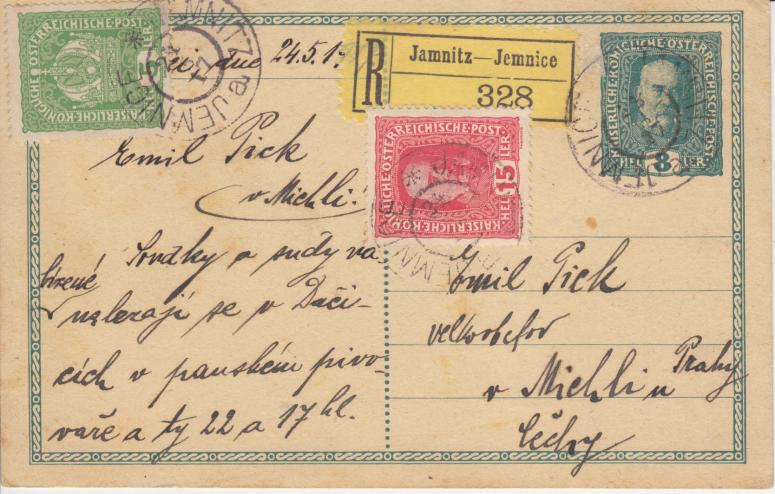 KAISERLICHE KÖNIGLICHE ÖSTERREICHISCHE POST
JEMNITZ * JEMNICE
dne 24.5.1
R
Jamnitz—Jemnice
328
KAISERLICHE KÖNIGLICHE ÖSTERREICHISCHE POST
HELLER 8 HELLER
KAISERLICHE KÖNIGLICHE ÖSTERREICHISCHE POST
HELLER 15
Emil Pick
v Michli!
a sudy va
nalezají se v Dači-
cích v panském pivo-
vaře a ty 22 a 17 hl.
Emil Pick
velkoobchod
v Michli u Prahy
Čechy